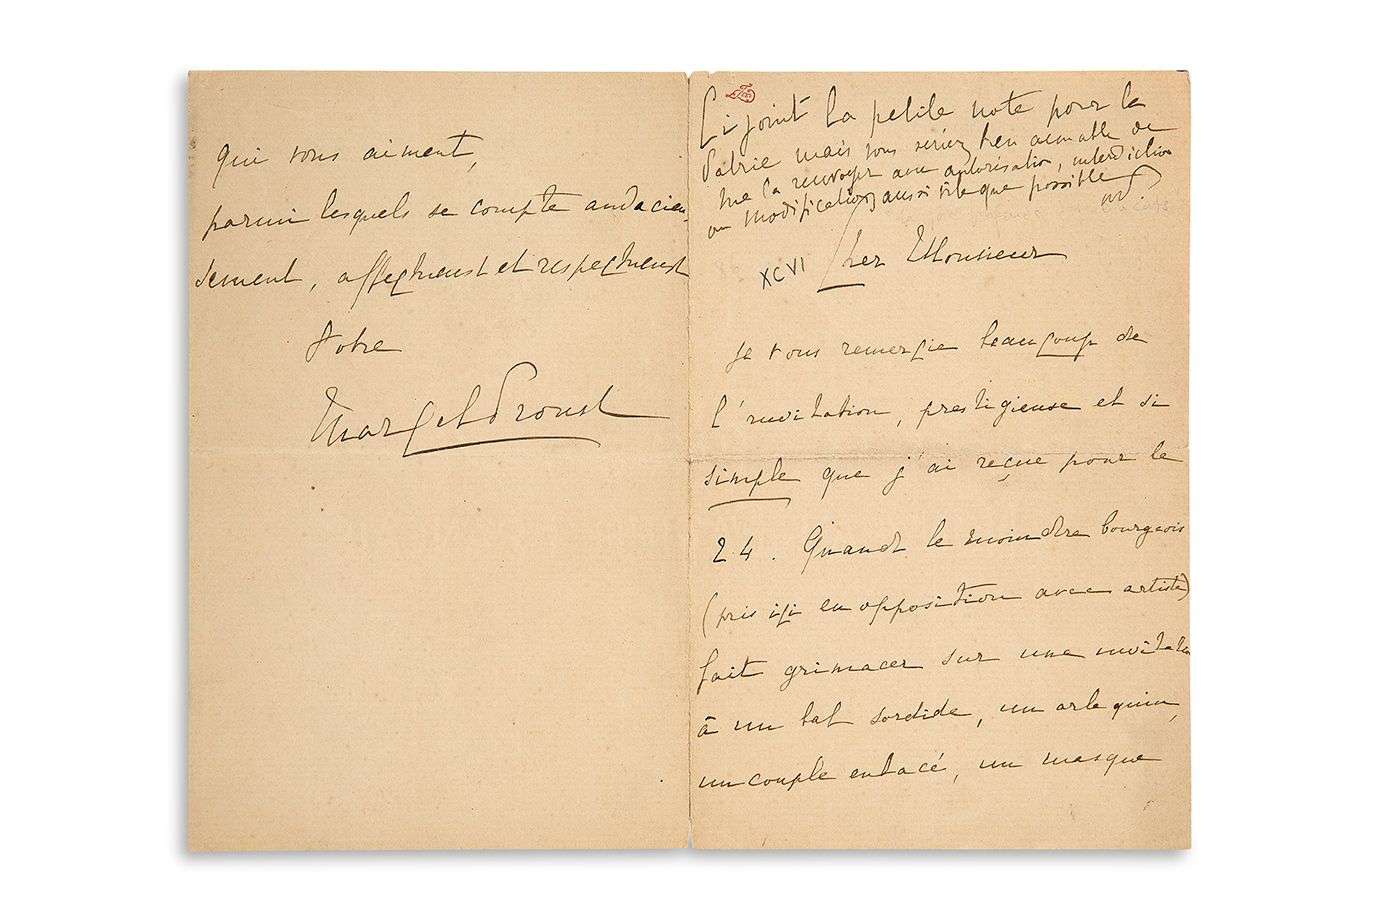 Ci joint la petite note pour la
Patrie mais vous seriez bien aimable de
me la renvoyer avec autorisation, interdiction
ou modification, aussi vite que possible
XCVI Cher Monsieur
Je vous remercie beaucoup de
l'invitation, prestigieuse et si
simple que j'ai reçue pour le
24. Quand le moindre bourgeois
(pris ici en opposition avec artiste)
fait grimacer sur une invitation
à un bal sordide, un arlequin,
un couple enlacé, un masque
qui vous aiment,
parmi lesquels se compte audacieu-
sement, affectueust et respectueust
Votre
Marcel Proust